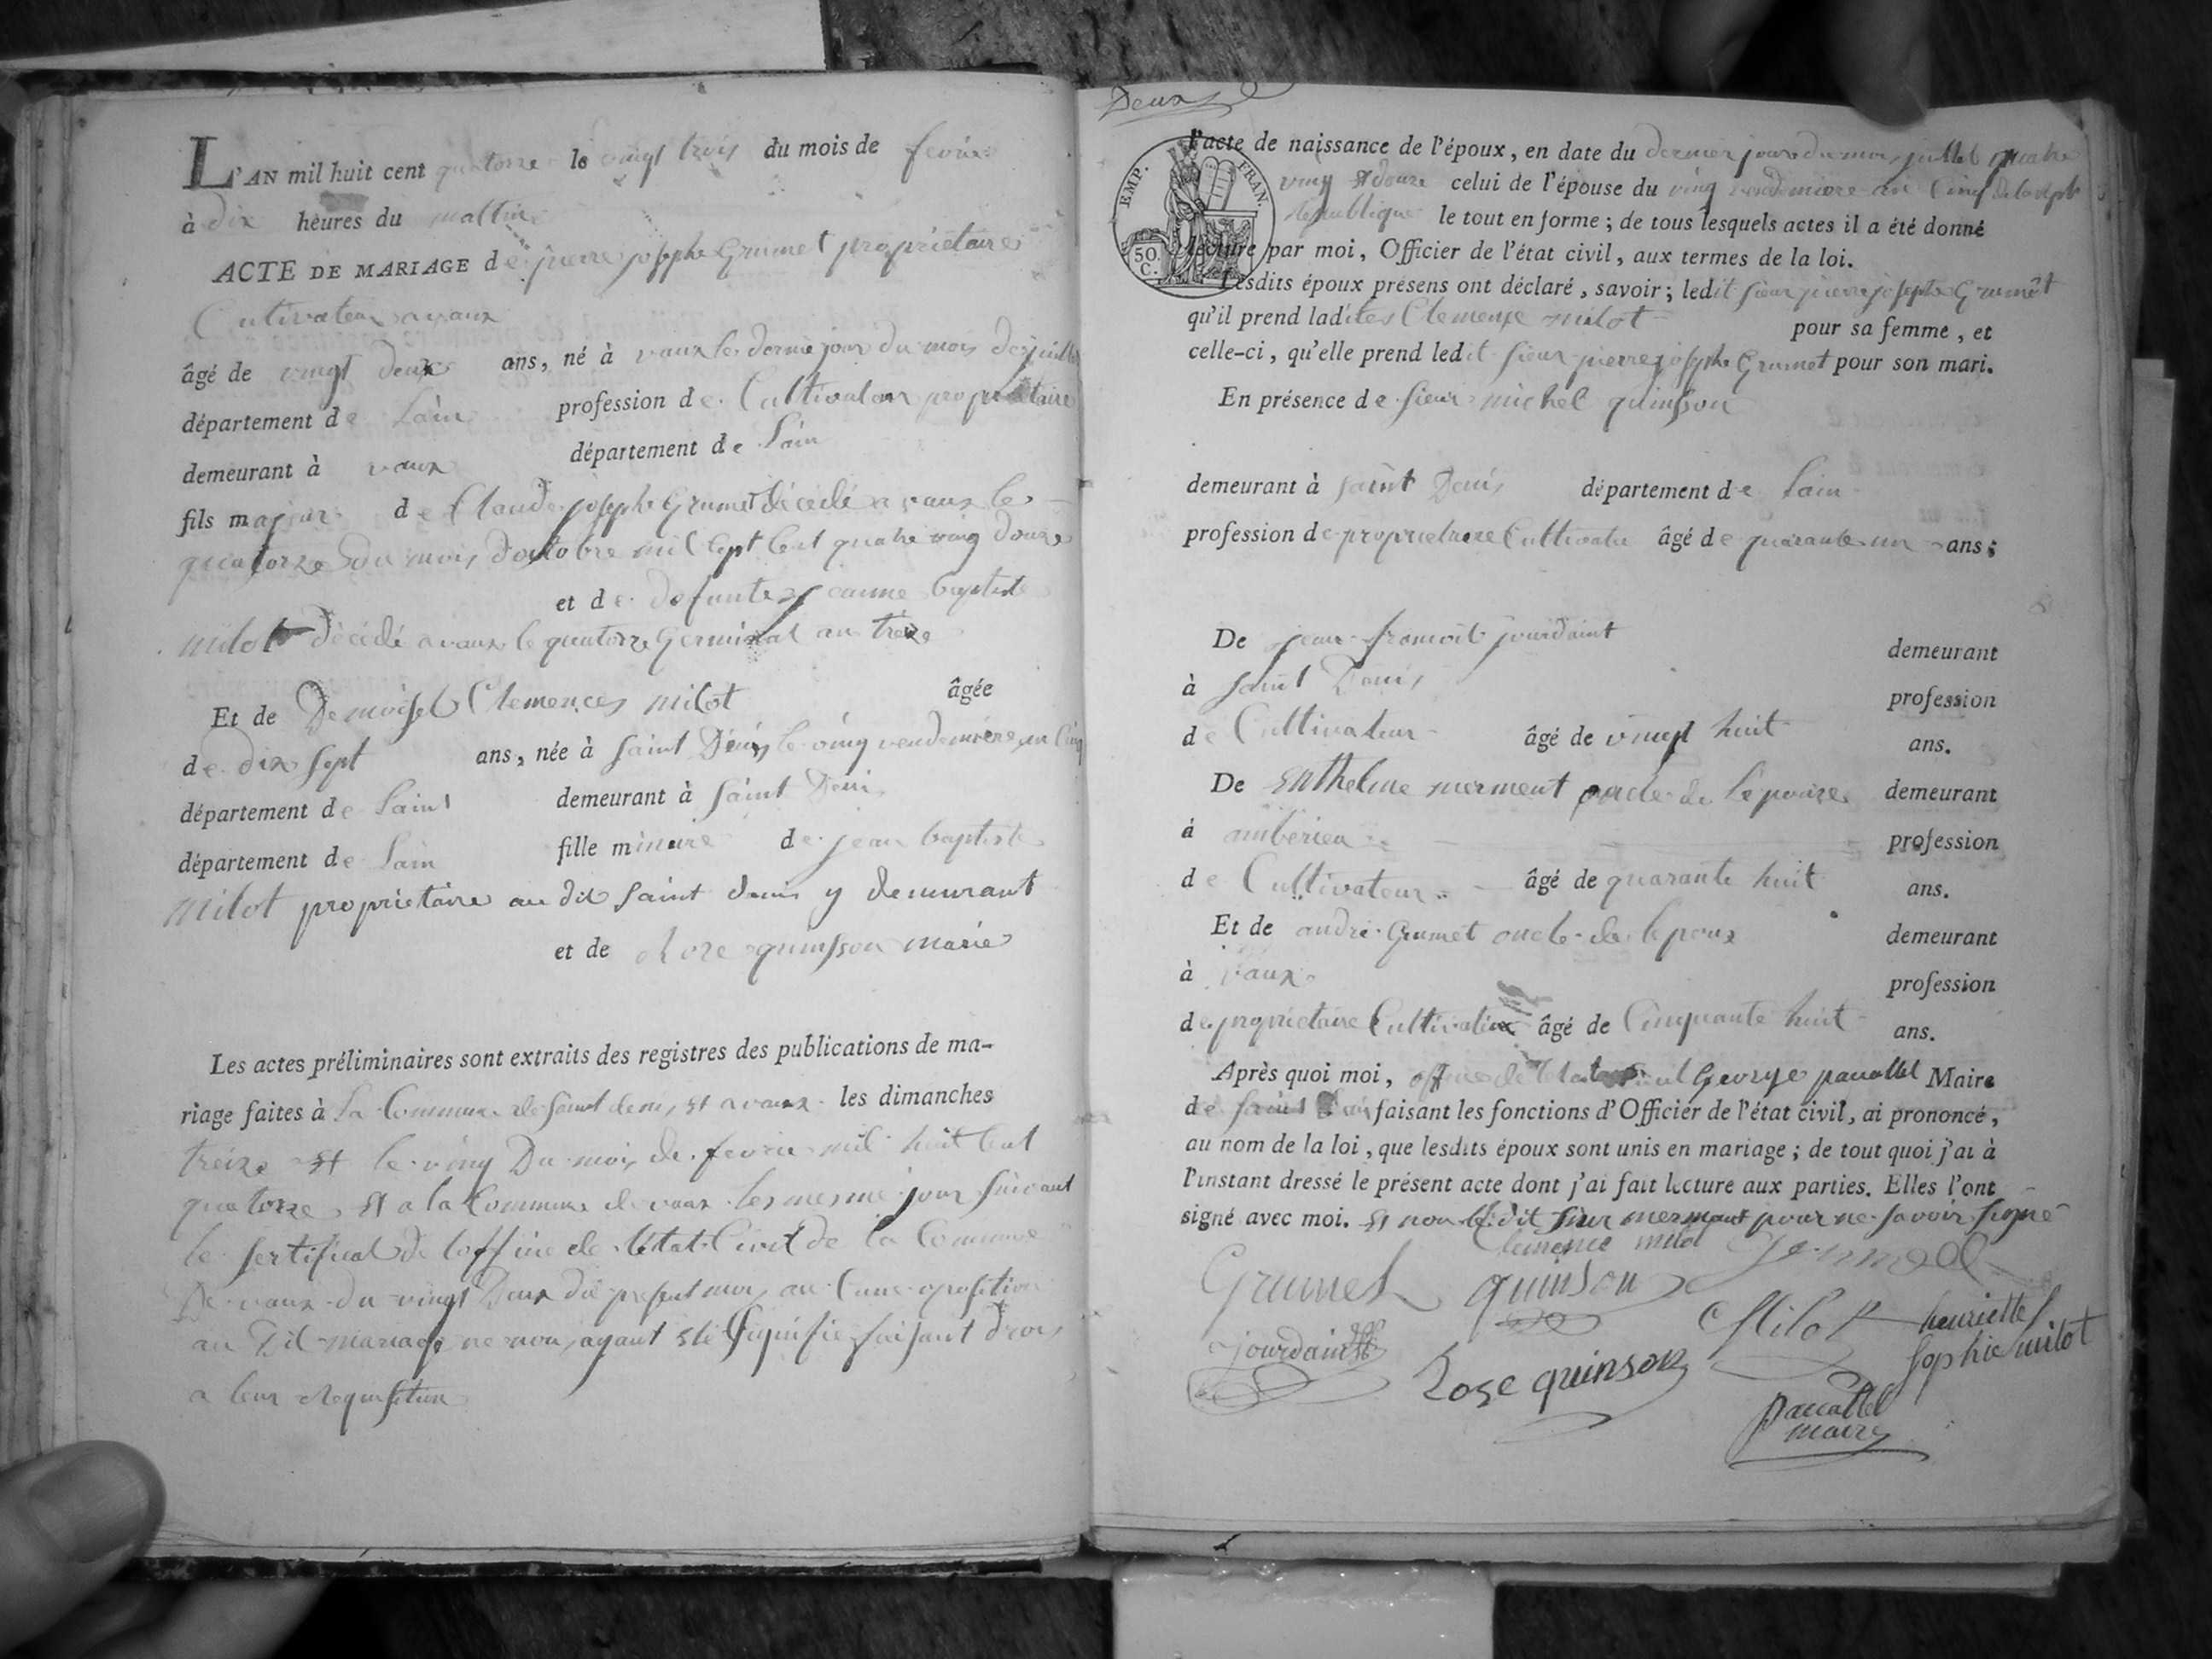 L'AN mil huit cent quatorze le vingt trois du mois de fevrier
à dix heures du mattin
ACTE DE MARIAGE de pierre josephe Grumet propriétaire
Cultivateur a vaux
âgé de vingt deux ans, né à vaux le dernie jour du mois de juillet
département de Lain profession de Cultivateur propriétaire
demeurant à vaux département de Lain
fils majeur de Claude josephe Grumet décédé a vaux le
quatorze du mois d'octobre mil sept cent quatre ving douze
et de defunte jeanne baptiste
milot décédé a vaux le quatorze Germinal an treize
Et de Demoisel Clemences milot âgée
de dix sept ans, née à saint Denis le ving vendemiere an cinq
département de Lain demeurant à saint Denis
département de Lain fille minure de jean baptiste
milot propriétaire au dit saint denis y demurant
et de Roze quinsson marié
Les actes préliminaires sont extraits des registres des publications de ma-
riage faites à la Commune de saint denis et a vaux les dimanches
treize et le ving Du mois de fevrie mil huit cent
quatorze et a la Commune de vaux les mesme jour suivant
le sertificat de loffice de létat Civil de la Commune
De vaux du vingt Deux du present mois aucune opositions
au Dit mariage ne nous ayant été signifie faisant droit
a leur requisition
Deux
l'acte de naissance de l'époux, en date du dernier jour du mois juillet quatre
ving et douze celui de l'épouse du ving vendemiere an cinq de la
republique le tout en forme ; de tous lesquels actes il a été donné
lecture par moi, Officier de l'état civil, aux termes de la loi.
EMP. FRAN.
50 C.
Lesdits époux présens ont déclaré, savoir; ledit sieur pierre josephe Grumet
qu'il prend ladites Clemence milot pour sa femme, et
celle-ci, qu'elle prend ledit sieur pierre josephe Grumet pour son mari.
En présence de sieur michel quinsson
demeurant à saint Denis département de Lain
profession de propriétaire Cultivateur âgé de quarante un ans;
De jean francois jourdaint demeurant
à saint Denis profession
de Cultivateur âgé de vingt huit ans.
De Enthelme merment oncle de lepouze demeurant
à amberieu profession
de Cultivateur âgé de quarante huit ans.
Et de andré Grumet oncle de lepoux demeurant
à vaux profession
de propriétaire Cultivateur âgé de Cinquante huit ans.
Après quoi moi, George pauattel Maire
de saint Denis faisant les fonctions d'Officier de l'état civil, ai prononcé,
au nom de la loi, que lesdits époux sont unis en mariage ; de tout quoi j'ai à
l'instant dressé le présent acte dont j'ai fait lecture aux parties. Elles l'ont
signé avec moi. et non le dit sieur mermant pour ne savoir signé
Clemence milot
Grumet quinson
Milot henriette
jourdain Roze quinson sophie milot
pauattel
maire